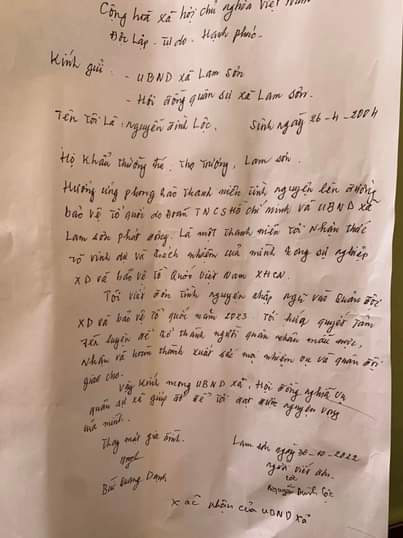 Cộng hoà xã hội chủ nghĩa Việt Nam
Độc Lập. Tự do. Hạnh phúc.
Kính gửi. - UBND xã Lam Sơn
- Hội đồng quân sự xã Lam Sơn.
Tên Tôi Là: Nguyễn Đình Lộc. Sinh ngày 26-4-2004
Hộ Khẩu thường trú. Thọ Trường. Lam Sơn.
Hưởng ứng phong trào thanh niên tình nguyện lên đường
bảo vệ tổ quốc do Đoàn TNCS Hồ chí minh và UBND Xã
Lam Sơn phát động. Là một thanh niên tôi Nhận thức
rõ vinh dự và trách nhiệm của mình trong sự nghiệp
XD và bảo vệ tổ Quốc Việt Nam XHCN.
Tôi viết đơn tình nguyện nhập ngũ vào Quân đội
XD và bảo vệ tổ quốc năm 2023. Tôi hứa quyết tâm
rèn luyện để trở thành người quân nhân mẫu mực,
Nhận và hoàn thành xuất sắc mọi nhiệm vụ và quân đội
giao cho.
Vậy Kính mong UBND Xã, Hội đồng nghĩa vụ
quân sự xã giúp đỡ để tôi đạt được nguyện vọng
của mình.
Thay mặt gia đình. Lam Sơn ngày 30-10-2022
người viết đơn.
Lộc
Nguyễn Đình Lộc
Xác nhận của UBND Xã